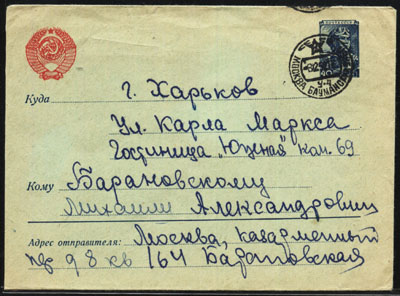 ПОЧТА СССР
МОСКВА
Куда г. Харьков
Ул. Карла Маркса
Гостиница „Южная" ком. 69
Кому Барановскому
Михаилу Александровичу
Адрес отправителя: Москва, казарменный
пер 98 кв 164 Барановская